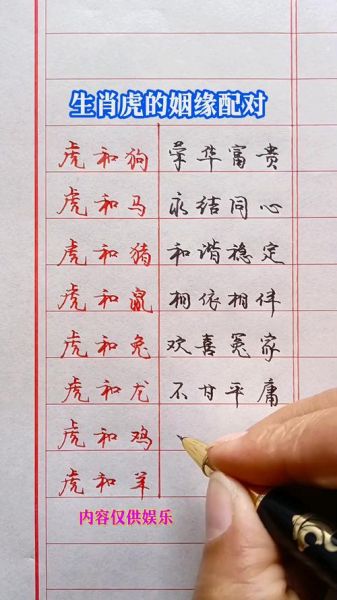 生肖虎的姻缘配对
虎和狗 荣华富贵
虎和马 永结同心
虎和猪 和谐稳定
虎和鼠 相依相伴
虎和兔 欢喜冤家
虎和龙 不甘平庸
虎和鸡
虎和羊
内容仅供娱乐